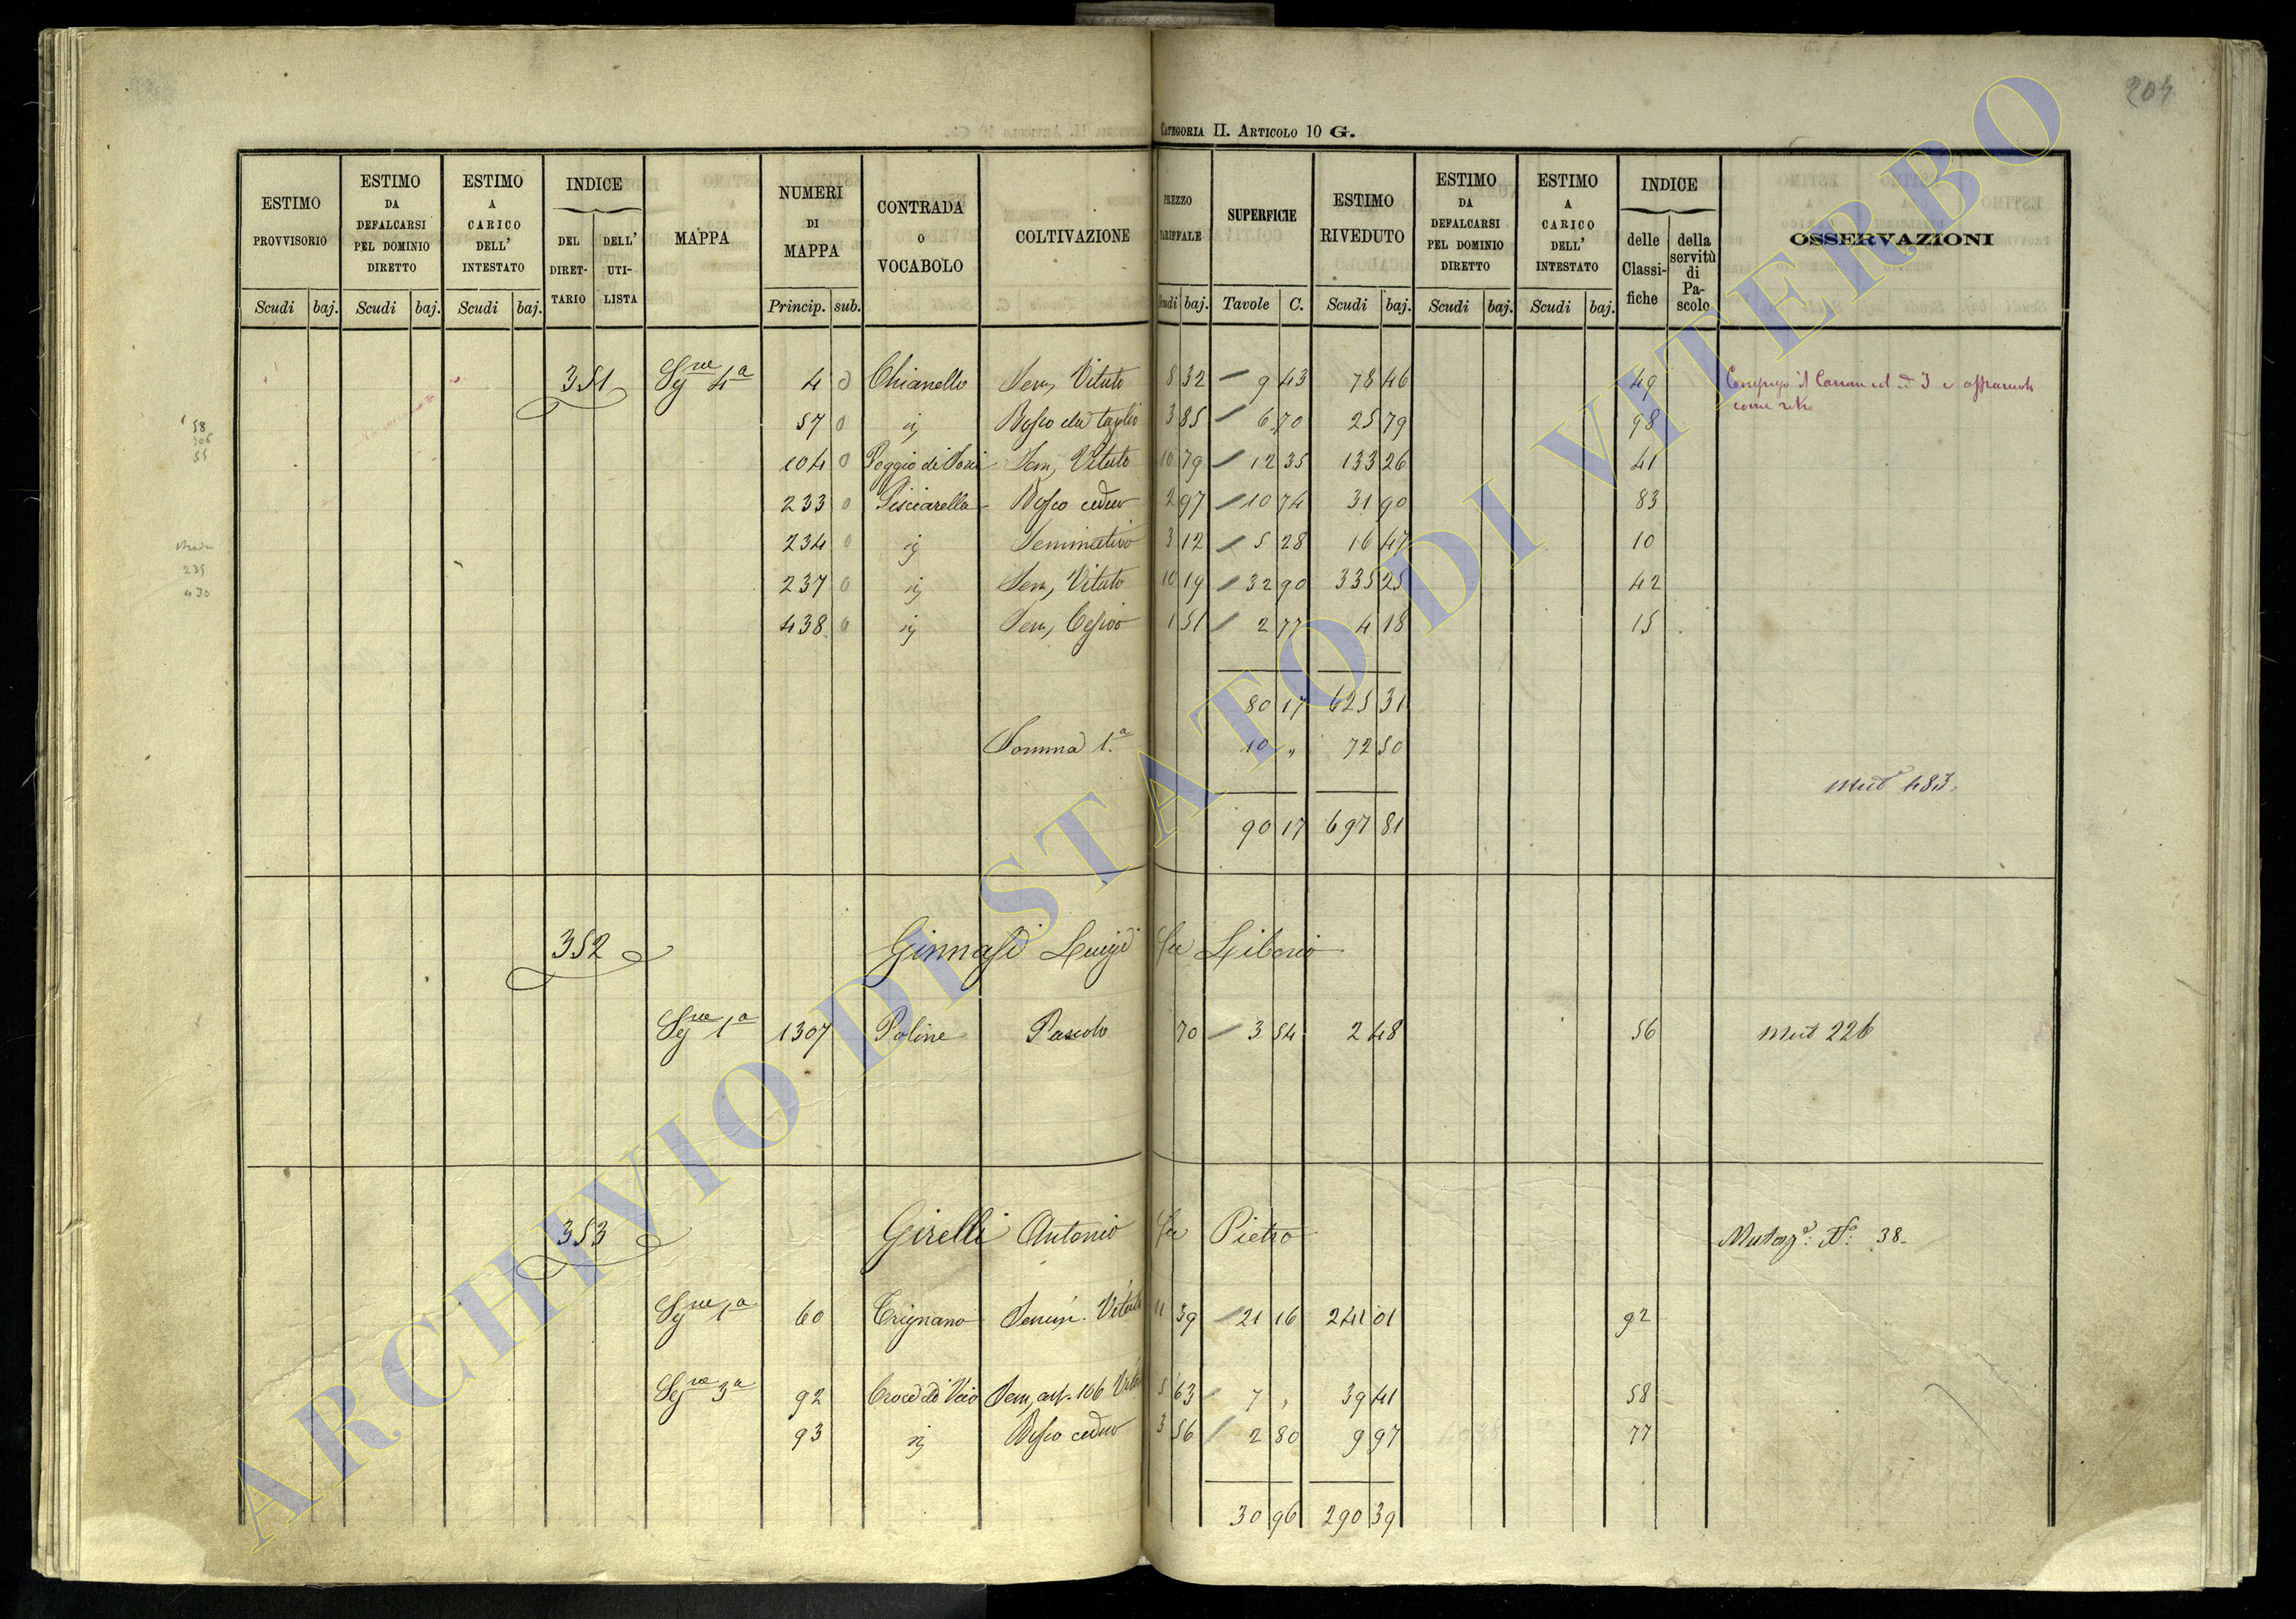 204
CATEGORIA II. ARTICOLO 10 G.
ESTIMO PROVVISORIO Scudi baj.
ESTIMO DA DEFALCARSI PEL DOMINIO DIRETTO Scudi baj.
ESTIMO A CARICO DELL' INTESTATO Scudi baj.
INDICE DEL DIRETTARIO DELL' UTILISTA
MAPPA
NUMERI DI MAPPA Princip. sub.
CONTRADA O VOCABOLO
COLTIVAZIONE
PREZZO TARIFFALE Scudi baj.
SUPERFICIE Tavole C.
ESTIMO RIVEDUTO Scudi baj.
ESTIMO DA DEFALCARSI PEL DOMINIO DIRETTO Scudi baj.
ESTIMO A CARICO DELL' INTESTATO Scudi baj.
INDICE delle Classifiche della servitù di Pascolo
OSSERVAZIONI
351 Sg.ne 4a 4 0 Chianello Sem, Vitato 8 32 9 43 78 46 49
come retro
58
57 0 Bosco da taglio 3 85 6 70 25 79 98
104 0 Poggio di Sem, Vitato 10 79 12 35 133 26 41
233 0 Pisciarella Bosco ceduo 2 97 10 74 31 90 83
234 0 Seminativo 3 12 5 28 16 47 10
235
237 0 Sem, Vitato 10 19 32 90 335 25 42
430
438 0 Sem, Cesivo 1 51 2 77 4 18 15
80 17 625 31
Somma 1.a 10 " 72 50
Mut 483.
90 17 697 81
352 Ginnasi Luigi fu Liborio
Sg.ne 1a 1307 Poline Pascolo 70 3 54 2 48 56 Mut 226
353 Girelli Antonio fu Pietro Mutaz.e: N.o: 38.
Sg.ne 1a 60 Trignano Semin. Vitato 11 39 21 16 241 01 92
Sg.ne 3a 92 Croce di Sem, 5 63 7 " 39 41 58
93 Bosco ceduo 3 56 2 80 9 97 77
30 96 290 39
ARCHIVIO DI STATO DI VITERBO